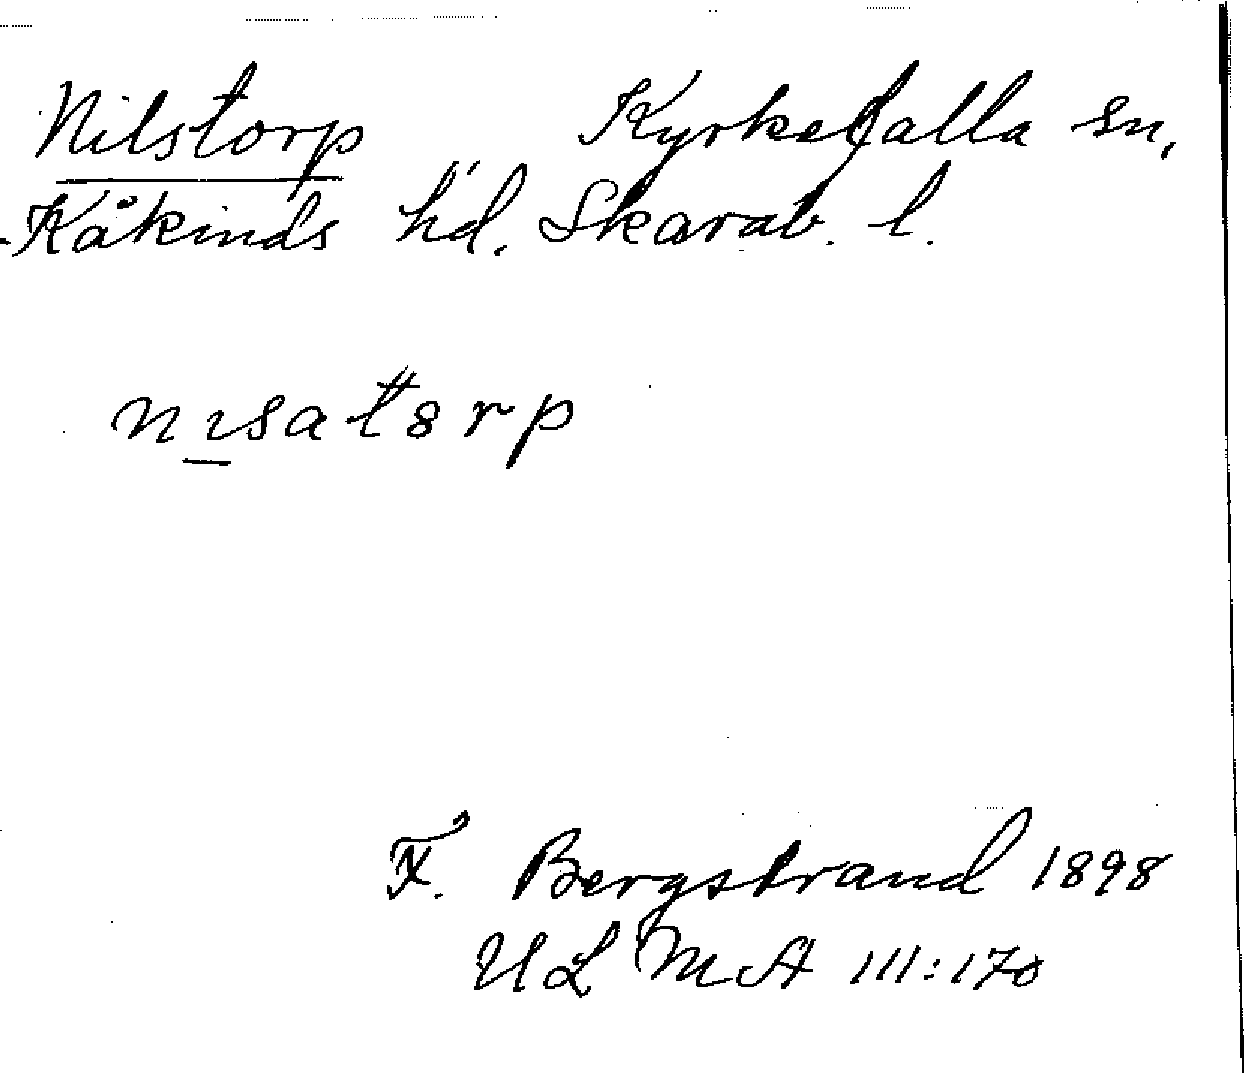 Nilstorp Kyrkefalla sn,
Kåkinds hd. Skarab. l.
nısat8rp
F. Bergstrand 1898
ULMA 111:170